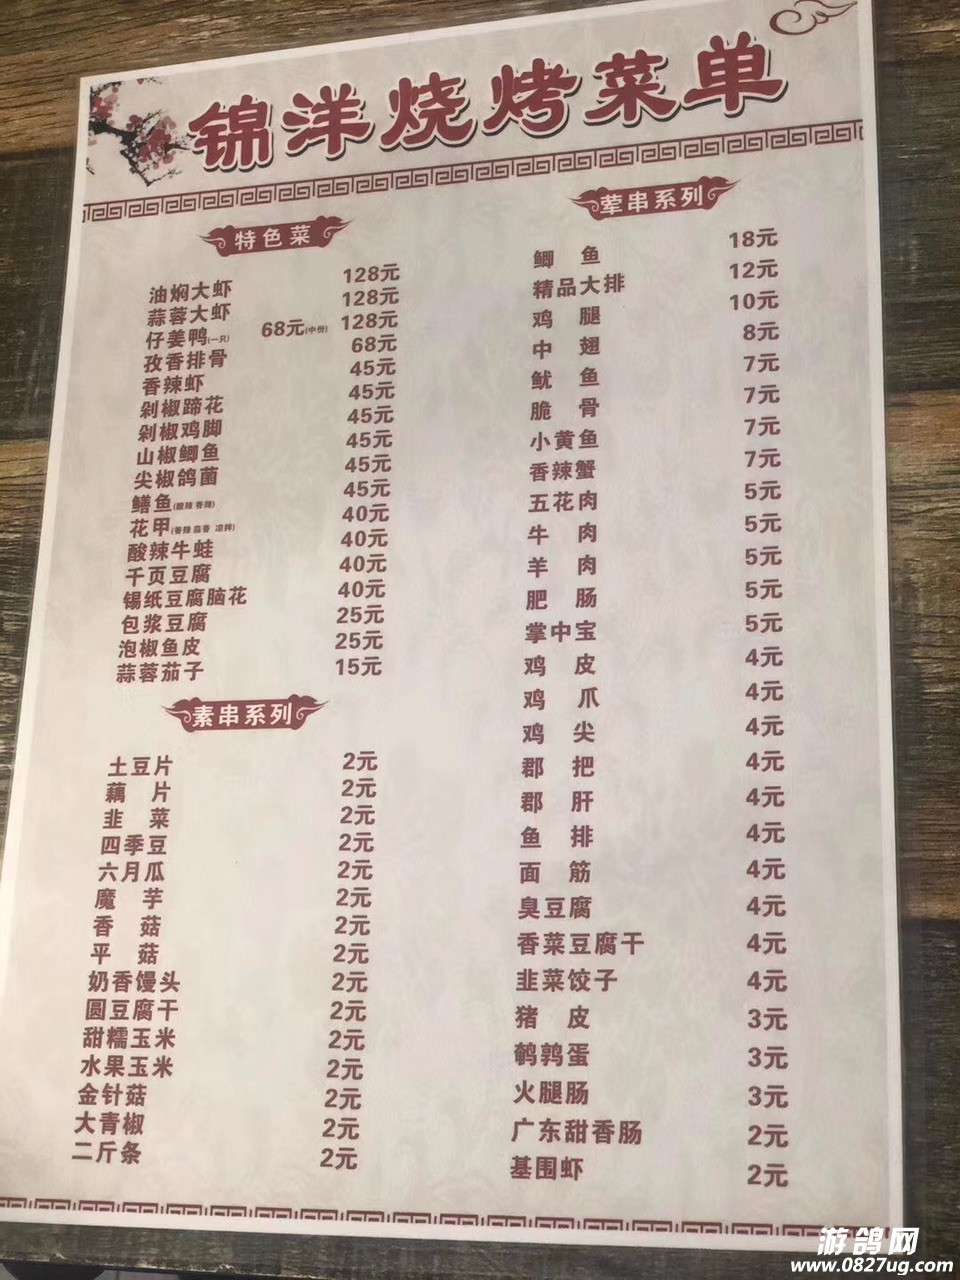 锦洋烧烤菜单
特色菜
油焖大虾 128元
蒜蓉大虾 128元
仔姜鸭(一只) 68元(中份) 128元
孜香排骨 68元
香辣虾 45元
剁椒蹄花 45元
剁椒鸡脚 45元
山椒鲫鱼 45元
尖椒鸽菌 45元
鳝鱼(酸辣 香辣) 45元
花甲(香辣 蒜香 凉拌) 40元
酸辣牛蛙 40元
千页豆腐 40元
锡纸豆腐脑花 40元
包浆豆腐 25元
泡椒鱼皮 25元
蒜蓉茄子 15元
素串系列
土豆片 2元
藕片 2元
韭菜 2元
四季豆 2元
六月瓜 2元
魔芋 2元
香菇 2元
平菇 2元
奶香馒头 2元
圆豆腐干 2元
甜糯玉米 2元
水果玉米 2元
金针菇 2元
大青椒 2元
二斤条 2元
荤串系列
鲫鱼 18元
精品大排 12元
鸡腿 10元
中翅 8元
鱿鱼 7元
脆骨 7元
小黄鱼 7元
香辣蟹 7元
五花肉 5元
牛肉 5元
羊肉 5元
肥肠 5元
掌中宝 5元
鸡皮 4元
鸡爪 4元
鸡尖 4元
郡把 4元
郡肝 4元
鱼排 4元
面筋 4元
臭豆腐 4元
香菜豆腐干 4元
韭菜饺子 4元
猪皮 3元
鹌鹑蛋 3元
火腿肠 3元
广东甜香肠 2元
基围虾 2元
游鸽网
www.0827ug.com